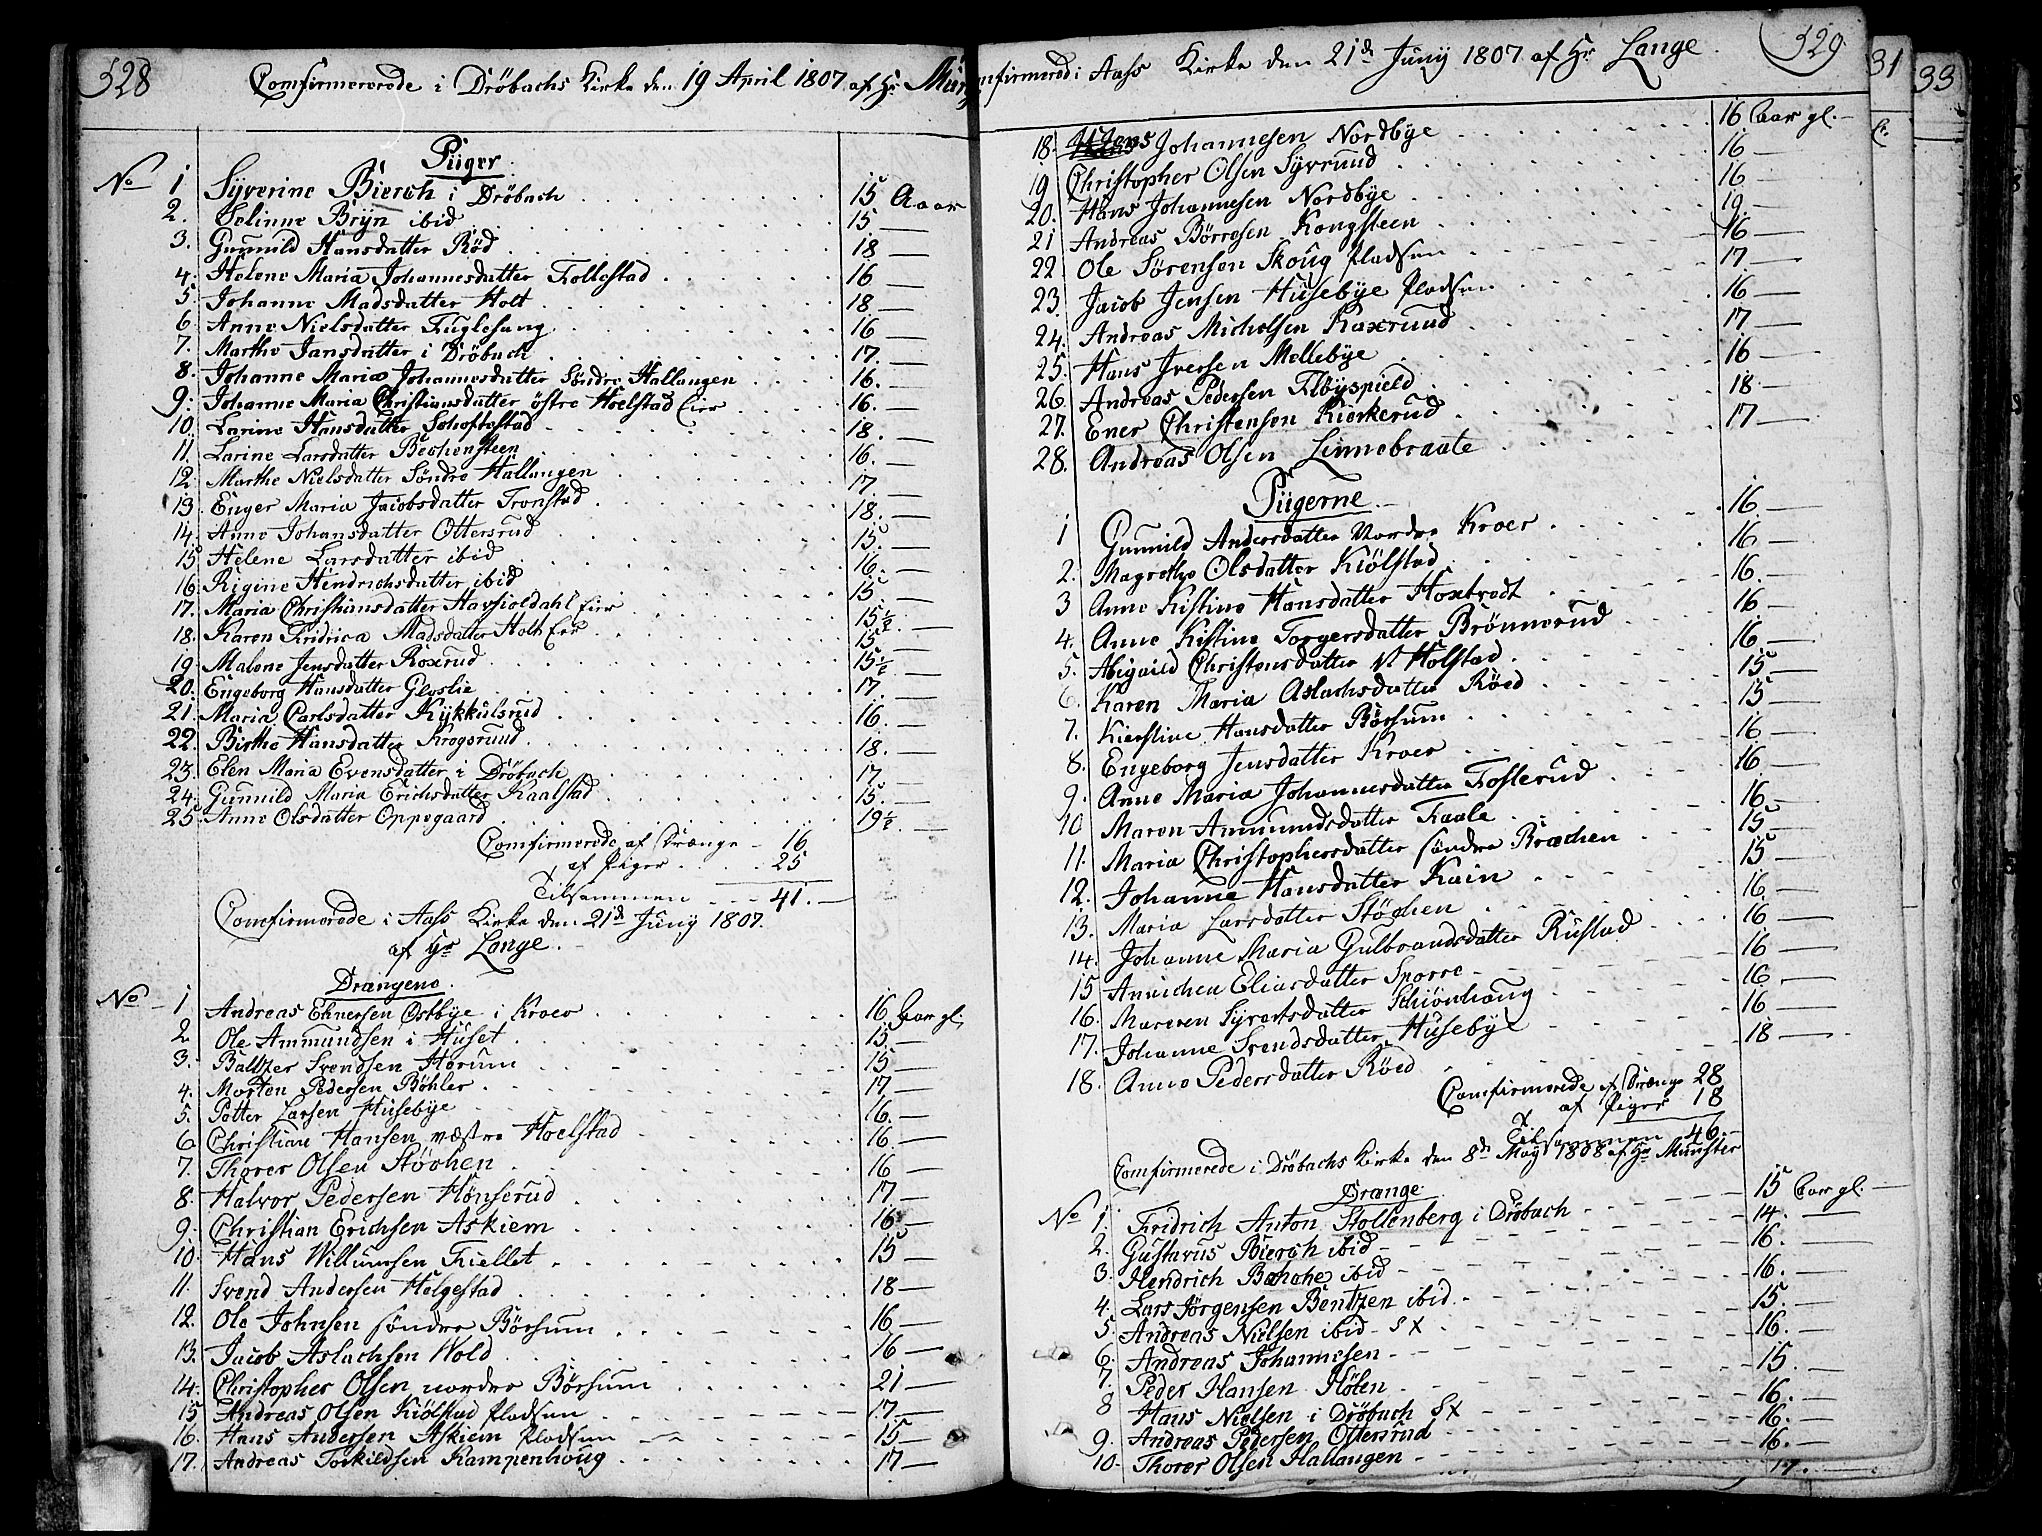 328
Comfirmererede i Dröbachs Kirke den 19 April 1807 af Hr
Piiger
No 1 Syverine Bierch i Dröbach 15 Aaar
2. Selinne Bryn ibid 15. —
3. Gunnild Hansdatter Röd 18 —
4. Helene Maria Johannesdatter Follestad 16 —
5. Johanne Madsdatter Holt 18 —
6. Anne Nielsdatter Fuglesang 16 —
7. Marthe Jansdatter i Dröbach 17. —
8. Johanne Maria Johannesdatter Söndre Hallangen 16. —
9. Johanne Maria Christiansdatter östre Hoelstad Eier 16. —
10. Larine Hansdatter Schoftestad 18. —
11. Larine Larsdatter Bechensteen 16. —
12. Marthe Nielsdatter Söndre Hallangen 17. —
13. Enger Maria Jacobsdatter Tronstad 18. —
14. Anne Johansdatter Ottersrud 15. —
15 Helene Larsdatter ibid 16. —
16. Rigine Hendrichsdatter ibid 15 —
17. Maria Christiansdatter Havsioldahl Eier 15½ —
18. Karen Fridrica Madsdatter Holt Eier 15 —
19 Malene Jensdatter Roxrud 15½ —
20. Engeborg Hansdatter Gloslie 17. —
21. Maria Carlsdatter Kykkulsrud 16. —
22. Birthe Hansdatter Krogsruud 18. —
23. Elen Maria Evensdatter i Dröbach 17. —
24. Gunnild Maria Erichsdatter Kaalstad 15. —
25 Anne Olsdatter Oppegaard 19½ —
Comfirmerede af Drænge - 16
af Piger 25
Tilsammen 41. —
Comfirmerede i Aass Kirke den 21de Juny 1807.
af Hr Lange.
Drængene.
No - 1 Andreas Ehnersen Ostbye i Kroer 16 Aar gl.
2 Ole Ammundsen i Huset 15 —
3. Baltzer Svendsen Horum 15 —
4. Morten Pedersen Böhler 17 —
5. Petter Larsen Husebye 16. —
6 Christian Hansen væstre Hoelstad 16 —
7. Thorer Olsen Stöchen 16 —
8. Halvor Pedersen Hönserud 17 —
9. Christian Erichsen Askiem 16 —
10. Hans Willumsen Fiellet 15 —
11. Svend Andersen Helgestad 18 —
12. Ole Johnsen söndre Börsum 16 —
13. Jacob Aslachsen Wold 16 —
14. Christopher Olsen nordre Börsum 21 —
15 Andreas Olsen Kiölstad Pladsen 17. —
16. Hans Andersen Askiem Pladsen 15 —
17. Andreas Torkildsen Kampenhoug 17 —
329
Comfirmered i Aass Kirke den 21de Juny 1807 af Hr Lange.
18. Johannesen Nordbye 16 Aar gl. —
19 Christopher Olsen Syvruud 16 —
20. Hans Johannesen Nordbye 16 —
21 Andreas Börresen Kongsteen 19 —
22 Ole Sörensen Skoug Pladsen 16 —
23. Jacob Jensen Husebye Pladsen 17 —
24. Andreas Michelsen Raxruud 16 —
25. Hans Iversen Mellebye 17 —
26 Andreas Pedersen Flöyspield 16 —
27. Ener Christensen Kierkerud 18 —
28. Andreas Olsen Linnebraate 17 —
Piigerne.
1 Gunnild Andersdatter Nordre Kroer 16 —
2. Magrethe Olsdatter Kiölstad 16 —
3 Anne Kistine Hansdatter Foxtvedt 16. —
4. Anne Kistine Torgersdatter Brönnerud 16 —
5. Abigaild Christensdatter V Holstad 16 —
6. Karen Maria Aslachsdatter Röed 15 —
7. Kierstine Hansdatter Börsum 15 —
8. Engeborg Jensdatter Kroer 16 —
9. Anne Maria Johannesdatter Fosterud 16 —
10 Maren Ammundsdatter Faale 16 —
11. Maria Christophersdatter söndre Bræchen 15 —
12. Johanne Hansdatter Kain 15 —
13. Maria Larsdatter Stöchen 16 —
14. Johanne Maria Gulbrandsdatter Rustad 16 —
15 Annichen Eliasdatter Sporre 16 —
16. Mareren Syvertsdatter Schiönhaug 16 —
17. Johanne Svendsdatter Husebye 16 —
18. Anne Pedersdatter Röed 18 —
Comfirmerede af Drænge 28
af Piger 18
Tilsammen 46. —
Comfirmerede i Dröbachs Kirke den 8de May 1808 af Hr Münster
Drænge.
No 1. Fridrich Anton Stollenberg i Dröbach 15 Aar gl. —
2. Gustavus Bierch ibid 14. —
3. Hendrich Banche ibid 16. —
4. Lars Jörgensen Bentzen ibid 16. —
5. Andreas Nielsen ibid SX 15. —
6. Andreas Johannesen 16. —
7. Peder Hansen Hölen 15. —
8 Hans Nielsen i Dröbach SX 16. —
9. Andreas Pedersen Ottersrud 16. —
10. Thorer Olsen Hallangen 16. —
17. —
31
33